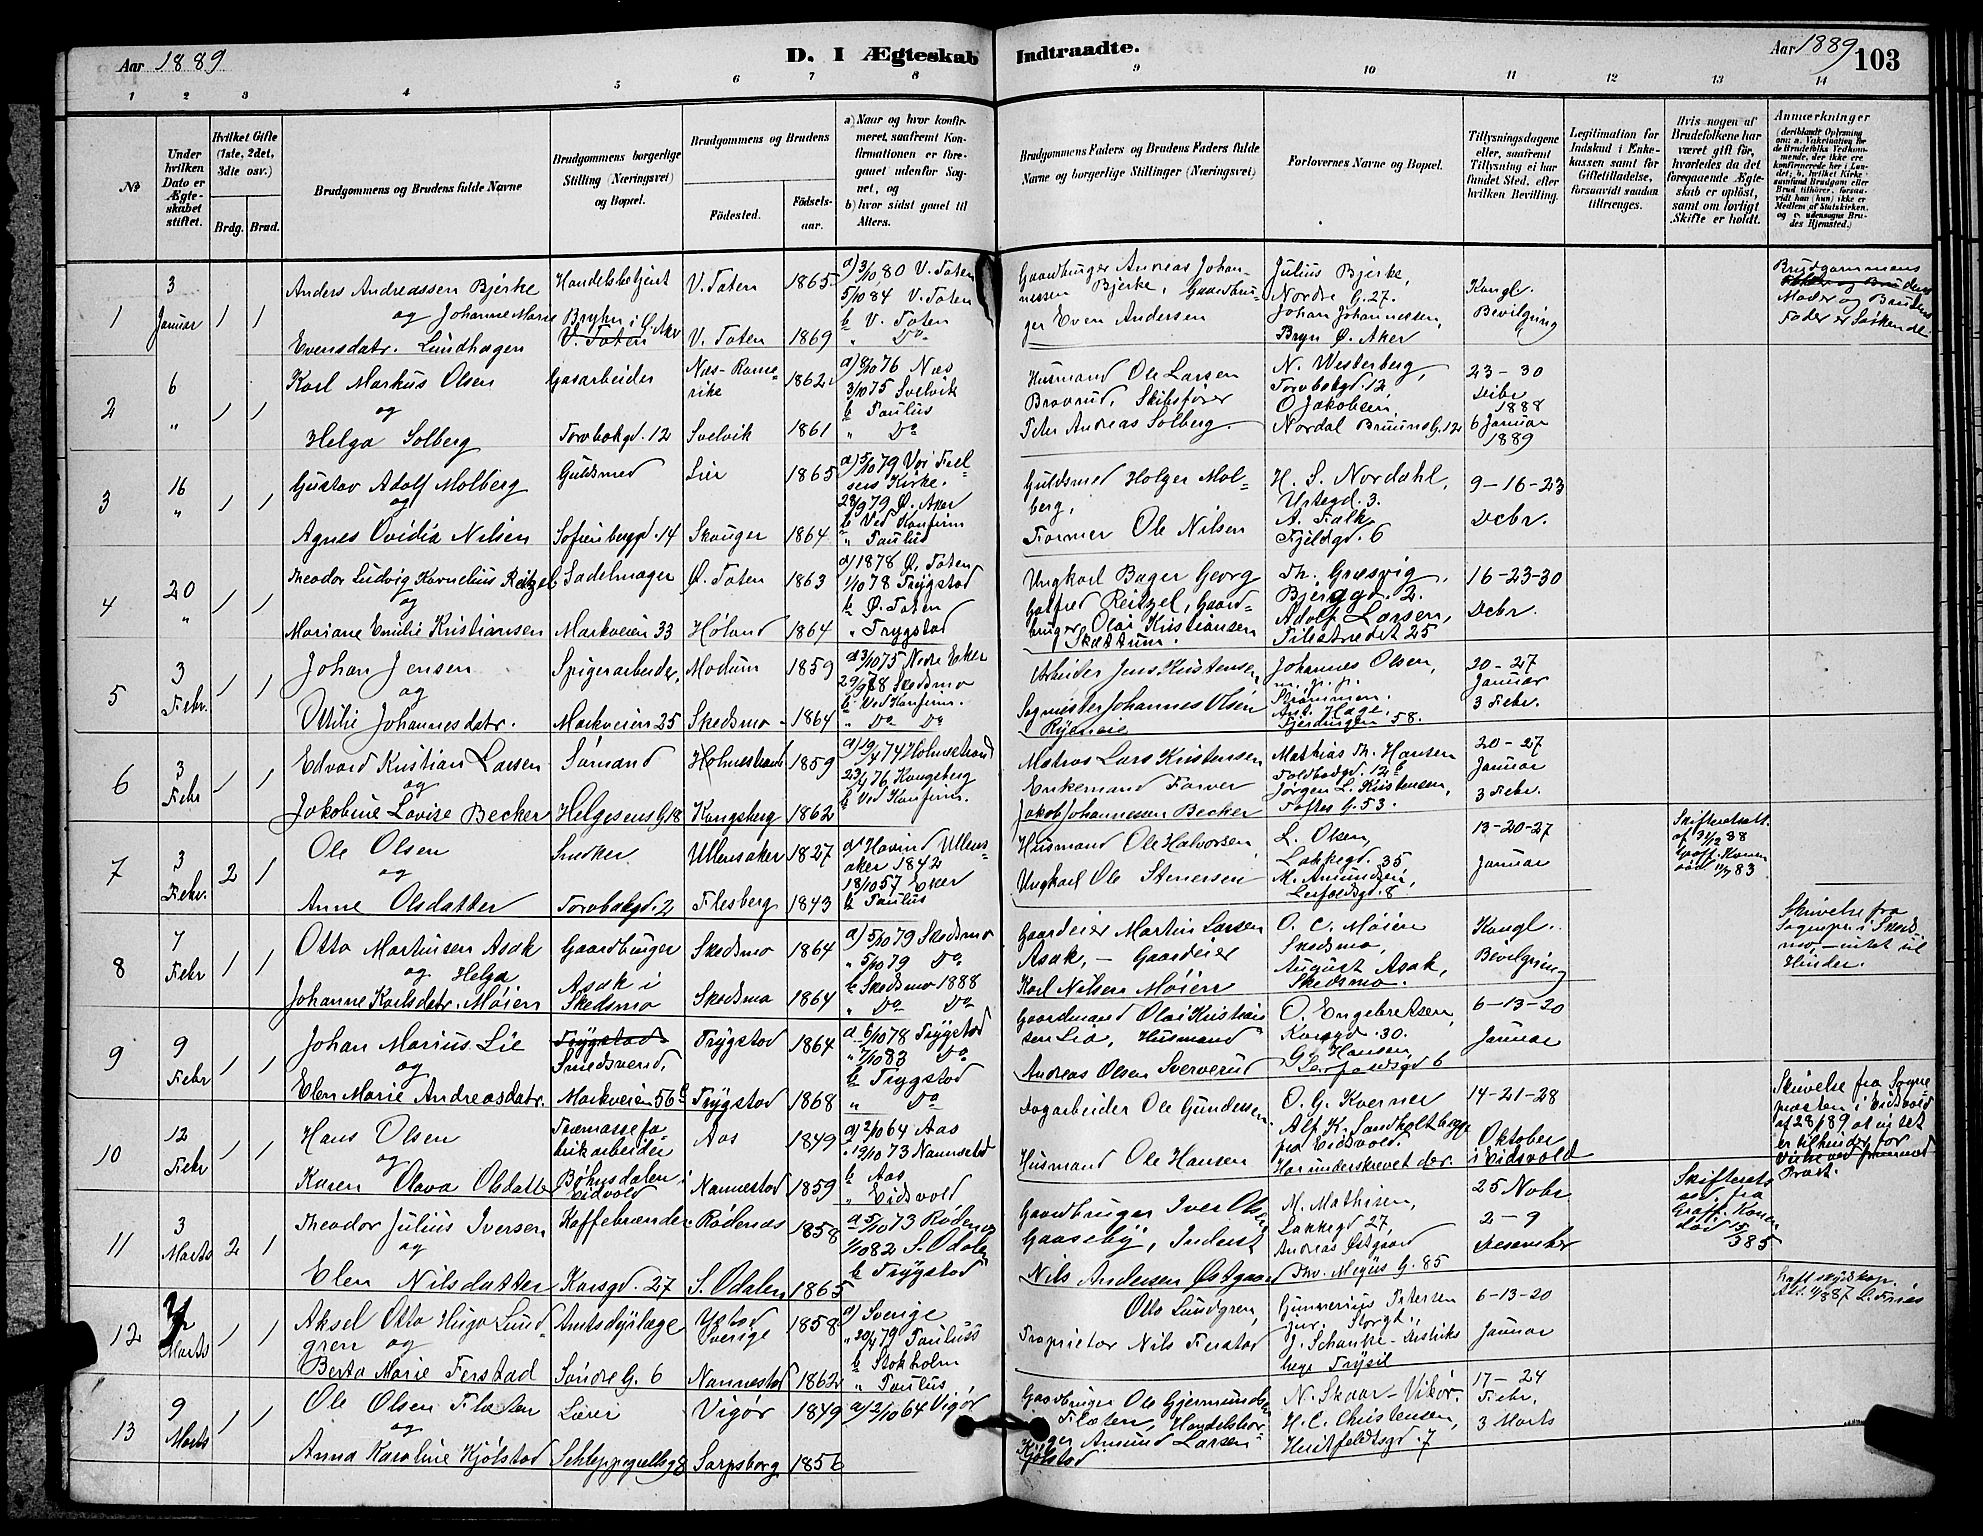 Aar 1889
D. I Ægteskab Indtraadte.
Aar 1889
103
1 2 3 4 5 6 7 8 9 10 11 12 13 14
No
Under hvilken Dato er Ægteskabet stiftet.
Hvilket Gifte (1ste, 2det, 3die osv.)
Brdg. Brud.
Brudgommens og Brudens fulde Navne
Brudgommens borgerlige Stilling (Næringsvei) og Bopæl.
Brudgommens og Brudens
Fødested.
Fødselsaar.
a) Naar og hvor konfirmeret, saafremt Konfirmationen er foregaaet udenfor Sognet, og
b) hvor sidst gaaet til Alters.
Brudgommens Faders og Brudens Faders fulde Navne og borgerlige Stillinger (Næringsvei)
Forlovernes Navne og Bopæl.
Tillysningsdagene eller, saafremt Tillysning ei har fundet Sted, efter hvilken Bevilling.
Legitimation for Indskud i Enkekassen samt for Giftetilladelse, forsaavidt saadan tiltrænges.
Hvis nogen af Brudefolkene har været gift før, hvorledes da det foregaaende Ægteskab er opløst, samt om lovligt Skifte er holdt.
Anmærkninger
1
3 Januar
1 1
Anders Andreassen Bjerke
og Johanne Marie
Evensdatr. Lundhagen
Handelsbetjent
Bryhn i Ø. Aker
V. Toten
V. Toten 1865
V. Toten 1869
a) 3/10 80 V. Toten
5/10 84 V. Toten
b V. Toten
" Do
Gaardbruger Andreas Johan-
nessen Bjerke, Gaardbru-
ger Even Andersen
Julius Bjerke,
Nordre G. 27.
Johan Johannessen,
Bryn Ø. Aker
Kongl.
Bevilgning
Brudgommens
Moder og Brudens
Fader er Søskende
2
6 "
1 1
Karl Markus Olsen
og
Helga Solberg
Gasarbeider
Torvbakgd. 12
Næs-Rome-
rike 1862
Svelvik 1861
a) 8/10 76 Næs
3/10 75 Svelvik
b Paulus
" Do
Husmand Ole Larsen
Bravrud, Skibsfører
Peter Andreas Solberg.
N. Westerberg,
Torvbakgd. 12
O. Jakobsen,
Nordal Bruuns G. 12
23-30
Debr
1888
6 Januar
1889
3
16 "
1 1
Gustav Adolf Molberg
og
Agnes Ovidia Nilsen
Guldsmed
Sofienberggd. 14
Lier 1865
Skouger 1864
a) 5/10 79 Vor Frel-
sers Kirke.
28/9 79 Ø. Aker
b Ved Konfirm
" Paulus
Guldsmed Holger Mol-
berg,
Former Ole Nilsen
H. S. Nordahl,
Urtegd. 3.
A. Falk,
Fjeldgd. 6
9-16-23
Debr.
4
20 "
1 1
Theodor Ludvig Kornelius Reitzel
og
Mariane Emilie Kristiansen
Sadelmager
Markveien 33
Ø. Toten 1863
Høland 1864
a) 1878 Ø. Toten
1/10 78 Trygstad
b Ø. Toten
" Trygstad
Ungkarl Bager Georg
Gotfred Reitzel, Gaard-
bruger Olai Kristiansen
Skattum.
Th. Græsvig,
Bjerggd. 2.
Adolf Larsen,
Pilestrædet 25
16-23-30
Debr.
5
3 Febr.
1 1
Johan Jensen
og
Ottilie Johannesdatr.
Spigerarbeider,
Markveien 25
Modum 1859
Skedsmo 1864
a 3/10 75 Nedre Eker
29/9 78 Skedsmo
b Ved Konfirm.
" Do Do
Arbeider Jens Kristensen,
Sagmester Johannes Olsen
Ryen
Johannes Olsen,
Strømmen.
Ant. Hage.
Fjerdingen 58.
20-27
Januar
3 Febr.
6
3 Febr
1 1
Edvard Kristian Larsen
og
Jakobine Lovise Becker
Sømand
Helgesens G 18
Holmestrand 1859
Kongsberg 1862
a) 19/4 74 Holmestrand
23/4 76 Kongsberg
b Ved Konfirm.
Matros Lars Kristensen
Enkemand Farver
Jakob Johannessen Becker
Mathias Th. Hansen
Toldbodgd. 12
Jørgen L. Kristensen,
Toftes G. 53.
20-27
Januar
3 Febr.
7
3 Febr.
2 1
Ole Olsen
og
Anne Olsdatter
Snedker
Torvbakgd. 2
Ullensaker 1827
Flesberg 1843
a) Hovind Ullens-
aker 1842
18/10 57 Eker
b Paulus
Husmand Ole Halvorsen
Ungkarl Ole Stenersen
L. Olsen,
Lakkegd. 35
M. Amundsen,
Leirfaldsgd. 8
13-20-27
Januar
Skifteretsatt.
af 31/12 88
Graff. Konen
død 11/7 83
8
7 Febr
1 1
Otto Martinsen Asak
og Helga
Johanne Karlsdatr. Møien
Gaardbruger
Asak i
Skedsmo
Skedsmo 1864
Skedsmo 1864
a) 5/10 79 Skedsmo
" 5/10 79 Do
b Skedsmo 1888
" Do Do
Gaardeier Martin Larsen
Asak, - Gaardeier
Karl Nilsen Møien
O. C. Møien
Skedsmo,
August Asak,
Skedsmo.
Kongl.
Bevilgning
Skrivelse fra
Sognepr. i Skeds-
mo - intet til
Hinder.
9
9 Febr
1 1
Johan Marius Lie
og
Elen Marie Andreasdatr.
Trygstad
Smedsvend,
Markveien 56
Trygstad 1864
Trygstad 1868
a 6/10 78 Trygstad
" 7/10 83 Do
b Trygstad
" Do
Gaardmand Olai Kristian
sen Lie, Husmand
Andreas Olsen Sververud
O. Engebretsen,
Korsgd. 30.
G. Hansen,
Leirfaldsgd 6
6-13-20
Januar
10
12 Febr
1 1
Hans Olsen
og
Karen Olava Olsdatter
Træmassefa-
brikarbeider
Bøhnsdalen i
Eidsvold
Aas 1849
Nannestad 1859
a) 2/10 64 Aas
" 19/10 73 Nannestad
b Aas
" Eidsvold
Dagarbeider Ole Gundersen
Husmand Ole Hansen
O. G. Kverner
Alf K. Sandholtbygge
fra Eidsvold.
Har underskrevet der.
14-21-28
Oktober
i Eidsvold
Skrivelse fra Sogne-
præsten i Eidsvold
af 28/1 89 at intet
er tilhinder for
Prost.
11
3 Marts
2 1
Theodor Julius Iversen
og
Elen Nilsdatter
Kaffebrænder
Korsgd. 27
Rødenæs 1858
S. Odalen 1865
a 5/10 73 Rødenæs
1/10 82 S. Odalen
b Trygstad
Gaardbruger Iver Olsen
Gaaseby, Inderst
Nils Andersen Østgaard
M. Mathisen,
Lakkegd 27,
Andreas Østgaard
Thv. Meyers G. 85
25 Nobr
2-9
December
Skifteret-
fra
Graff. Konen
død 15/3 85
12
Marts
1 1
Aksel Otto Hugo Lund-
gren og
Berta Marie Ferstad
Amtsdyrlæge
Søndre G. 6
Ystad
Sverige 1858
Nannestad 1862
a) Sverige
" 20/4 79 Paulus
b Stokholm
" Paulus
Otto Lundgren,
Proprietær Nils Ferstad
Gunnerius Petersen
jur. Storgt.,
J. Schanke - Distrikts
læge Trysil
6-13-20
Januar
13
9 Marts
1 1
Ole Olsen Flaten
og
Anna Karoline Kjølstad
Lærer
Schleppegrellsg 8
Vigør 1849
Sarpsborg 1856
a) 2/10 64 Vigør
Gaardbruger Ole Gjermundsen
Flaten, Handelsbor-
ger Amund Larsen
Kjølstad
N. Skaar - Vikør.
H. C. Christensen,
Huitfeldtsgd. 7
17-24
Febr.
3 Marts